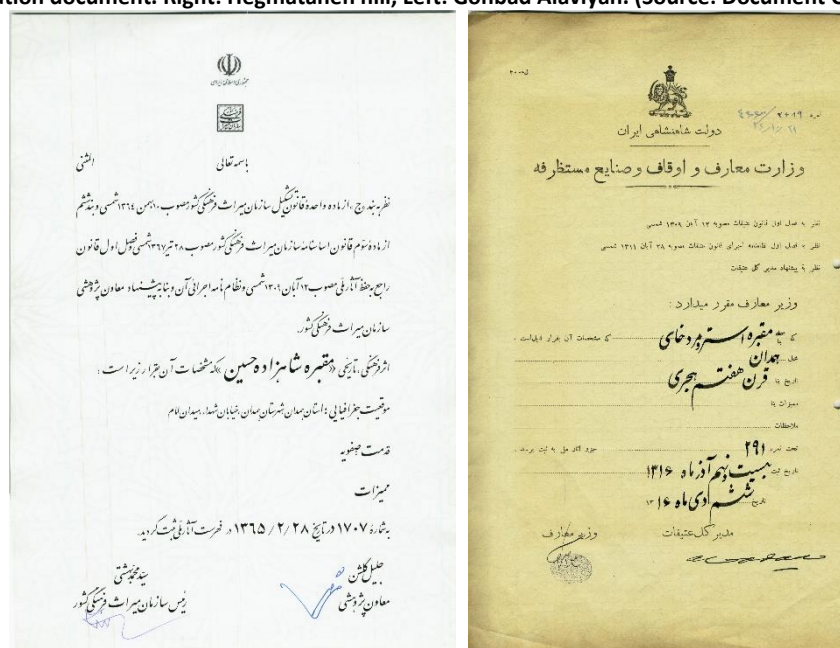 tion document. Right: Hegmataneh hill; Left: Gonbad Alaviyan. (Source: Document C
جمهوری اسلامی ایران
باسمه تعالی
نظر به بند «ج» از ماده واحده قانون تشکیل سازمان میراث فرهنگی کشور مصوب ۱۰ بهمن ۱۳۶۴ شمسی و بند ششم
از ماده سوم قانون اساسنامه سازمان میراث فرهنگی کشور مصوب ۲۸ تیر ۱۳۶۷ شمسی و فصل اول قانون
راجع به حفظ آثار ملی مصوب ۱۲ آبان ۱۳۰۹ شمسی و نظام نامه اجرائی آن و بنا به پیشنهاد معاون پژوهشی
سازمان میراث فرهنگی کشور
اثر فرهنگی، تاریخی «مقبره شاهزاده حسین» که مشخصات آن بقرار زیر است :
موقعیت جغرافیایی : استان همدان شهرستان همدان، خیابان شهدا، میدان امام
قدمت صفویه
ممیزات
به شمارهٔ ۱۷۰۷ در تاریخ ۱۳۶۵/۲/۲۸ در فهرست آثار ملی ثبت گردید.
جلیل گلشن
معاون پژوهشی
سید محمد بهشتی
رئیس سازمان میراث فرهنگی کشور
دولت شاهنشاهی ایران
وزارت معارف و اوقاف و صنایع مستظرفه
نظر به فصل اول قانون عتیقات مصوبه ۱۲ آبان ۱۳۰۹ شمسی
نظر به فصل اول نظامنامه اجرای قانون عتیقات مصوبه ۲۸ آبان ۱۳۱۱ شمسی
نظر به پیشنهاد مدیر کل عتیقات
وزیر معارف مقرر میدارد :
که بنا مقبره استر و مردخای که مشخصات آن بقرار ذیل است
محل همدان
تاریخ بنا قرن هفتم هجری
ممیزات بنا
ملاحظات
تحت نمره ۲۹۱ جزو آثار ملی به ثبت برسد
تاریخ ثبت بیست و نهم آذر ماه ۱۳۱۶
تاریخ ششم دی ماه ۱۳۱۶
مدیر کل عتیقات
وزیر معارف